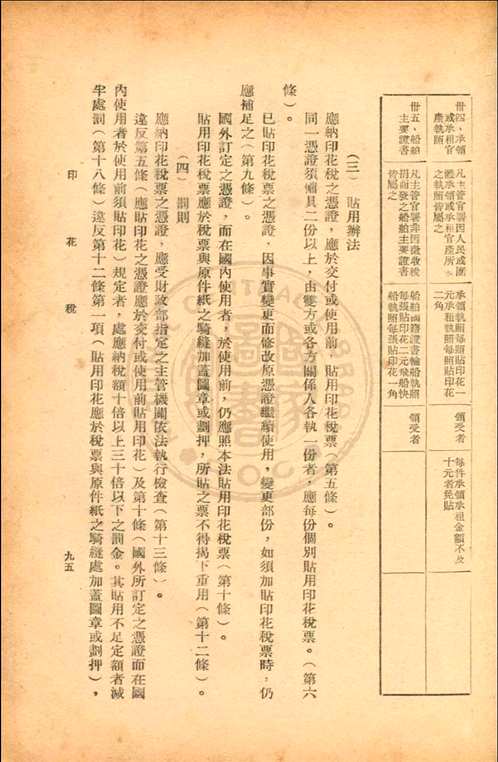 卅四、承領
或承租官
產執照
凡主管官署因人民或團
體承領或承租官產所發
之執照皆屬之
承領執照每照貼印花一
元承租執照每照貼印花
二角
領受者
每件承領承租金額不及
十元者免貼
卅五、船舶
主要證書
凡主管官署非因徵收稅
捐而發之船舶主要證書
皆屬之
船舶國籍證書輪船執照
每張貼印花二元帆船快
船執照每張貼印花一角
領受者
(三) 貼用辦法
應納印花稅票之憑證，應於交付或使用前，貼印花稅票(第五條)。
同一憑證須備具二份以上，由雙方或各方關係人各執一份者，應每份個別貼用印花稅票。(第六
條)。
已貼印花稅票之憑證，因事實變更而修改原憑證繼續使用，變更部份，如須加貼印花稅票時，仍
應補足之(第九條)。
國外訂定之憑證，而在國內使用者，於使用前，仍應照本法貼用印花稅票(第十條)。
貼用印花稅票應於稅票與原件紙之騎縫加蓋圖章或劃押，所貼之票不得揭下重用(第十二條)。
(四) 罰則
應納印花稅票之憑證，應受財政部指定之主管機關依法執行檢查(第十三條)。
違反第五條(應貼印花之憑證應於交付或使用前貼用印花)及第十條(國外所訂定之憑證而在國
內使用者於使用前須貼印花)規定者，處應納稅額十倍以上三十倍以下之罰金。其貼用不足定額者減
半處罰(第十八條)違反第十二條第一項(貼用印花應於稅票與原件紙之騎縫處加蓋圖章或劃押)，
印花稅
九五